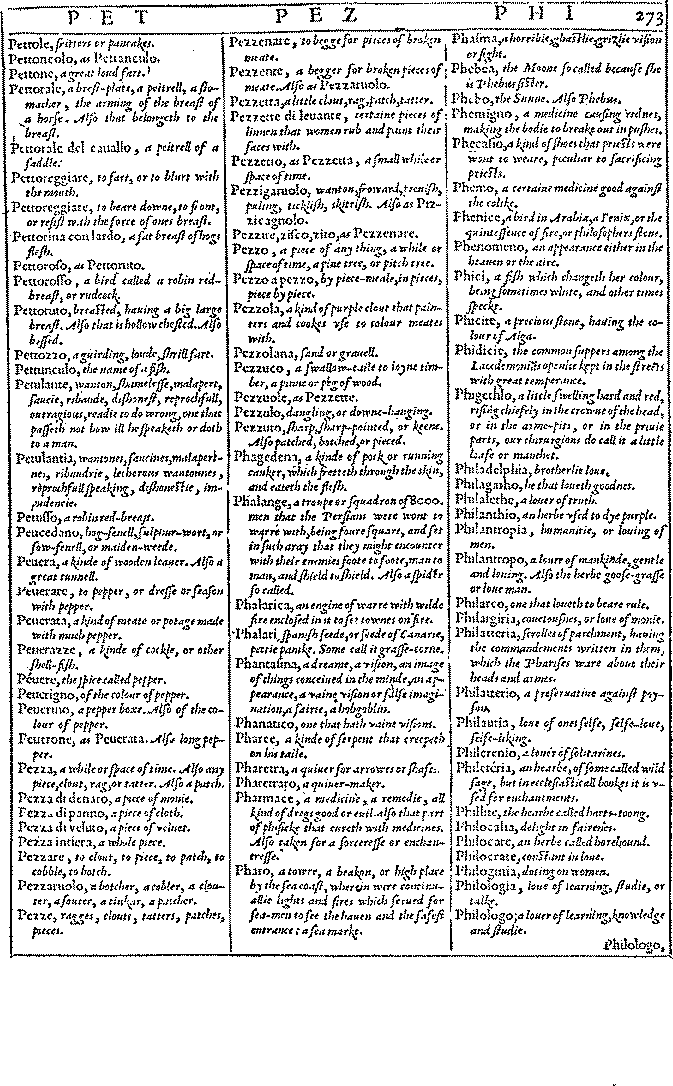 P E T
P E Z
P H I
273
Petrole, fritters or pancakes.
Pettoncolo, as Pettunculo.
Pettone, a great loud fart.
Pettorale, a brest-plate, a peitrell, a sto-
macher, the arming of the breast of
a horse. Also that belongeth to the
breast.
Pettorale del cauallo, a peitrell of a
saddle.
Pettoreggiare, to fart, or to blurt with
the mouth.
Pettoreggiare, to beare downe, to front,
or resist with the force of ones breast.
Pettorina con lardo, a fat breast of hogs
flesh.
Pettoroso, as Pettoruto.
Pettorosso, a bird called a robin red-
breast, or rudcock.
Pettoruto, breasted, hauing a big large
breast. Also that is hollow chested. Also
bossed.
Pettozzo, a girding, loude, shrill fart.
Pettunculo, the name of a fish.
Petulante, wanton, shamelesse, malapert,
saucie, ribaude, dishonest, reprochfull,
outragious, readie to do wrong, one that
passeth not how ill he speaketh or doth
to a man.
Petulantia, wantonnes, saucines, malapert-
nes, ribaudrie, lecherous wantonnes,
reprochfull speaking, dishonestie, im-
pudencie.
Petusso, a robin red-breast.
Peucedano, hog-fenell, sulphur-wort, or
sow-fenell, or maiden-weede.
Peuera, a kinde of wooden leauer. Also a
great tunnell.
Peuerare, to pepper, or dresse or season
with pepper.
Peuerata, a kind of meate or potage made
with much pepper.
Peuerazze, a kinde of cockle, or other
shell-fish.
Péuere, the spice called pepper.
Peuerigno, of the colour of pepper.
Peuerino, a pepper boxe. Also of the co-
lour of pepper.
Peuerone, as Peuerata. Also long pep-
per.
Pezza, a while or space of time. Also any
piece, clout, rag, or tatter. Also a patch.
Pezza di denaro, a piece of monie.
Pezza di panno, a piece of cloth.
Pezza di veluto, a piece of veluet.
Pezza intiera, a whole piece.
Pezzare, to clout, to piece, to patch, to
cobble, to botch.
Pezzaruolo, a botcher, a cobler, a clou-
ter, a souter, a tinkar, a patcher.
Pezze, ragges, clouts, tatters, patches,
pieces.
Pezzenare, to begge for pieces of broken
meate.
Pezzente, a begger for broken pieces of
meate. Also as Pezzaruolo.
Pezzetta, a little clout, rag, patch, tatter.
Pezzette di leuante, certaine pieces of
linnen that women rub and paint their
faces with.
Pezzetto, as Pezzetta, a small while or
space of time.
Pezzigaruolo, wanton, froward, treuish,
puling, ticklish, skittish. Also as Piz-
zicagnolo.
Pezzire, zisco, zito, as Pezzenare.
Pezzo, a piece of any thing, a while or
space of time, a pine tree, or pitch tree.
Pezzo a pezzo, by piece-meale, in pieces,
piece by piece.
Pezzola, a kind of purple clout that pain-
ters and cookes vse to colour meates
with.
Pezzolana, sand or grauell.
Pezzuco, a swallow-taile to ioyne tim-
ber, a pinne or peg of wood.
Pezzuole, as Pezzette.
Pezzulo, dangling, or downe-hanging.
Pezzuto, sharp, sharp-pointed, or keene.
Also patched, botched, or pieced.
Phagedena, a kinde of pock or running
canker, which fretteth through the skin,
and eateth the flesh.
Phalange, a troupe or squadron of 8000.
men that the Persians were wont to
warre with, being foure square, and set
in such aray that they might encounter
with their enemies foote to foote, man to
man, and shield to shield. Also a spider
so called.
Phalarica, an engine of warre with wilde
fire enclosed in it to set townes on fire.
Phalari, spanish seede, or seede of Canarie,
petie panike. Some call it grasse-corne.
Phantasma, a dreame, a vision, an image
of things conceiued in the minde, an ap-
pearance, a vaine vision or false imagi-
nation, a fairie, a hobgoblin.
Phanatico, one that hath vaine visions.
Pharee, a kinde of serpent that creepeth
on his taile.
Pharetra, a quiuer for arrowes or shafts.
Pharetraro, a quiuer-maker.
Pharmace, a medicine, a remedie, all
kind of drogs good or euil. Also that part
of phisicke that cureth with medicines.
Also taken for a sorceresse or enchan-
tresse.
Pharo, a towre, a beakon, or high place
by the sea coast, wherein were continu-
allie lights and fires which serued for
sea-men to see the hauen and the safest
entrance: a sea marke.
Phasma, a horrible, ghastlie, grizlie vision
or sight.
Phebea, the Moone so called because she
is Phebus sister.
Phebo, the Sunne. Also Phebus.
Phemigno, a medicine causing rednes,
making the bodie to breake out in pushes.
Phecasio, a kind of shoes that priests were
wont to weare, peculiar to sacrificing
priests.
Phemo, a certaine medicine good against
the colike.
Phenice, a bird in Arabia, a Fenix, or the
quintessence of fire, or philosophers stone.
Phenomeno, an appearance either in the
heauen or the aire.
Phici, a fish which changeth her colour,
being sometimes white, and other times
speckt.
Phicite, a precious stone, hauing the co-
lour of Alga.
Phidicie, the common suppers among the
Lacedemonits openlie kept in the streets
with great temperance.
Phigethlo, a little swelling hard and red,
rising chiefely in the crowne of the head,
or in the arme-pits, or in the priuie
parts, our chirurgions do call it a little
loafe or manchet.
Philadelphia, brotherlie loue.
Philagatho, he that loueth goodnes.
Philalethe, a louer of truth.
Philanthio, an herbe vsed to dye purple.
Philantropia, humanitie, or louing of
men.
Philantropo, a louer of mankinde, gentle
and louing. Also the herbe goose-grasse
or loue man.
Philarco, one that loueth to beare rule.
Philargiria, couetousnes, or loue of monie.
Philatteria, scrolles of parchment, hauing
the commandements written in them,
which the Pharises ware about their
heads and armes.
Philatterio, a preseruatiue against poy-
son.
Philautia, loue of ones selfe, selfe-loue,
selfe-liking.
Philerenio, a louer of solitarines.
Phileteria, an hearbe, of some called wild
sage, but in ecclesiasticall bookes it is v-
sed for enchantments.
Phillite, the hearbe called harts-toong.
Philocalia, delight in fairenes.
Philocare, an herbe called horehound.
Philocrate, constant in loue.
Philoginia, doting on women.
Philologia, loue of learning, studie, or
talke.
Philologo, a louer of learning, knowledge
and studie.
Philologo,